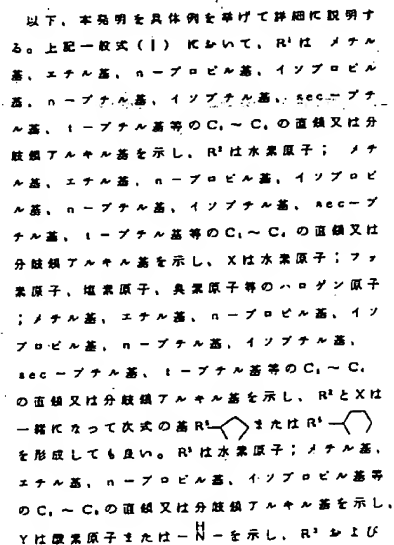 以下、本発明を具体例を挙げて詳細に説明す
る。上記一般式(Ⅰ)において、R¹は メチル
基、エチル基、n−プロピル基、イソプロピル
基、n−ブチル基、イソブチル基、sec−ブチ
ル基、t−ブチル基等のC₁〜C₄の直鎖又は分
岐鎖アルキル基を示し、R²は水素原子; メチ
ル基、エチル基、n−プロピル基、イソプロピ
ル基、n−ブチル基、イソブチル基、sec−ブ
チル基、t−ブチル基等のC₁〜C₄の直鎖又は
分岐鎖アルキル基を示し、Xは水素原子;フッ
素原子、塩素原子、臭素原子等のハロゲン原子
;メチル基、エチル基、n−プロピル基、イソ
プロピル基、n−ブチル基、イソブチル基、
sec−ブチル基、t−ブチル基等のC₁〜C₄
の直鎖又は分岐鎖アルキル基を示し、R²とXは
一緒になって次式の基R⁵ または R⁵
を形成しても良い。R⁵は水素原子;メチル基、
エチル基、n−プロピル基、イソプロピル基等
のC₁〜C₄の直鎖又は分岐鎖アルキル基を示し、
Yは酸素原子または−N−を示し、R³および
H